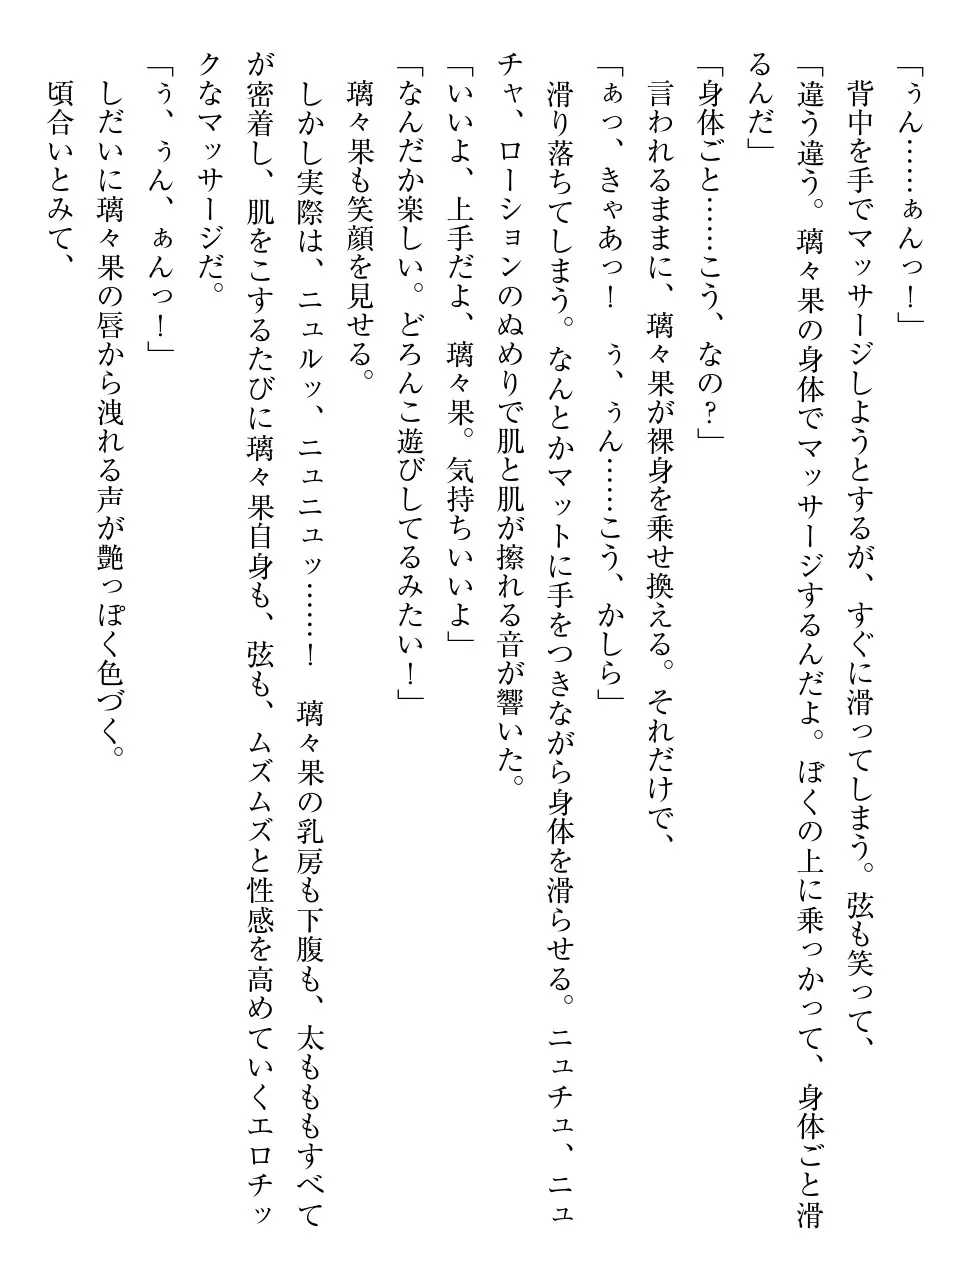 「ぅん……ぁんっ！」
　背中を手でマッサージしようとするが、すぐに滑ってしまう。弦も笑って、
「違う違う。璃々果の身体でマッサージするんだよ。ぼくの上に乗っかって、身体ごと滑
るんだ」
「身体ごと……こう、なの？」
　言われるままに、璃々果が裸身を乗せ換える。それだけで、
「ぁっ、きゃあっ！　ぅ、ぅん……こう、かしら」
　滑り落ちてしまう。なんとかマットに手をつきながら身体を滑らせる。ニュチュ、ニュ
チャ、ローションのぬめりで肌と肌が擦れる音が響いた。
「いいよ、上手だよ、璃々果。気持ちいいよ」
「なんだか楽しい。どろんこ遊びしてるみたい！」
　璃々果も笑顔を見せる。
　しかし実際は、ニュルッ、ニュニュッ……！　璃々果の乳房も下腹も、太ももももすべて
が密着し、肌をこするたびに璃々果自身も、弦も、ムズムズと性感を高めていくエロチッ
クなマッサージだ。
「ぅ、ぅん、ぁんっ！」
　しだいに璃々果の唇から洩れる声が艶っぽく色づく。
　頃合いとみて、